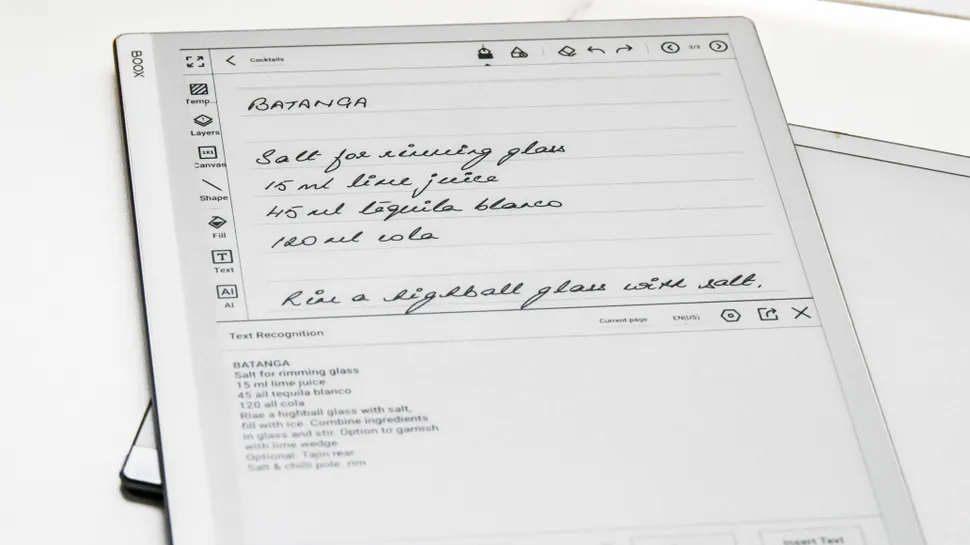 BOOX
Cocktails
3/3
Temp..
Layers
Canvas
Shape
Fill
Text
AI
AI
BATANGA
Salt for rimming glass
15 ml lime juice
45 ml tequila blanco
120 ml cola
Rim a highball glass with salt,
Text Recognition
Current page
EN(US)
BATANGA
Salt for rimming glass
15 ml lime juice
45 all tequila blanco
120 all cola
Riae a highball glass with salt,
fill with ice. Combine ingredients
in glass and stir. Option to garnish
with lime wedge
Optional: Tajin rear
Salt & chilli pole rim
Insert Text